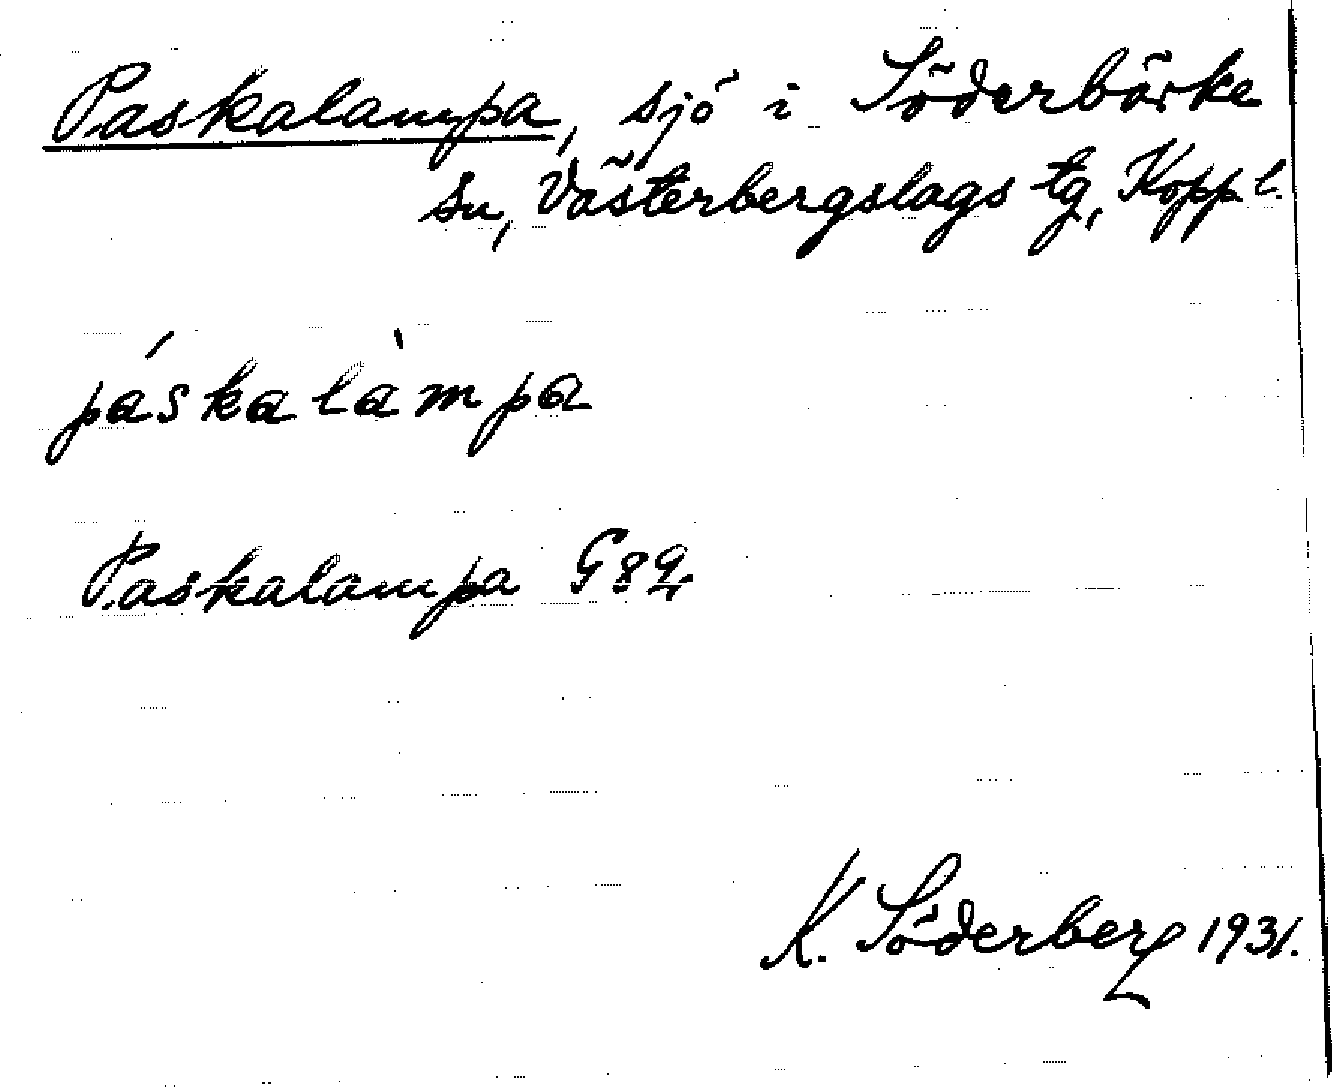 Paskalampa, sjö i Söderbärke
sn, Västerbergslags tg, Kopp l.
páskalàmpa
Paskalampa G82
K. Söderberg 1931.